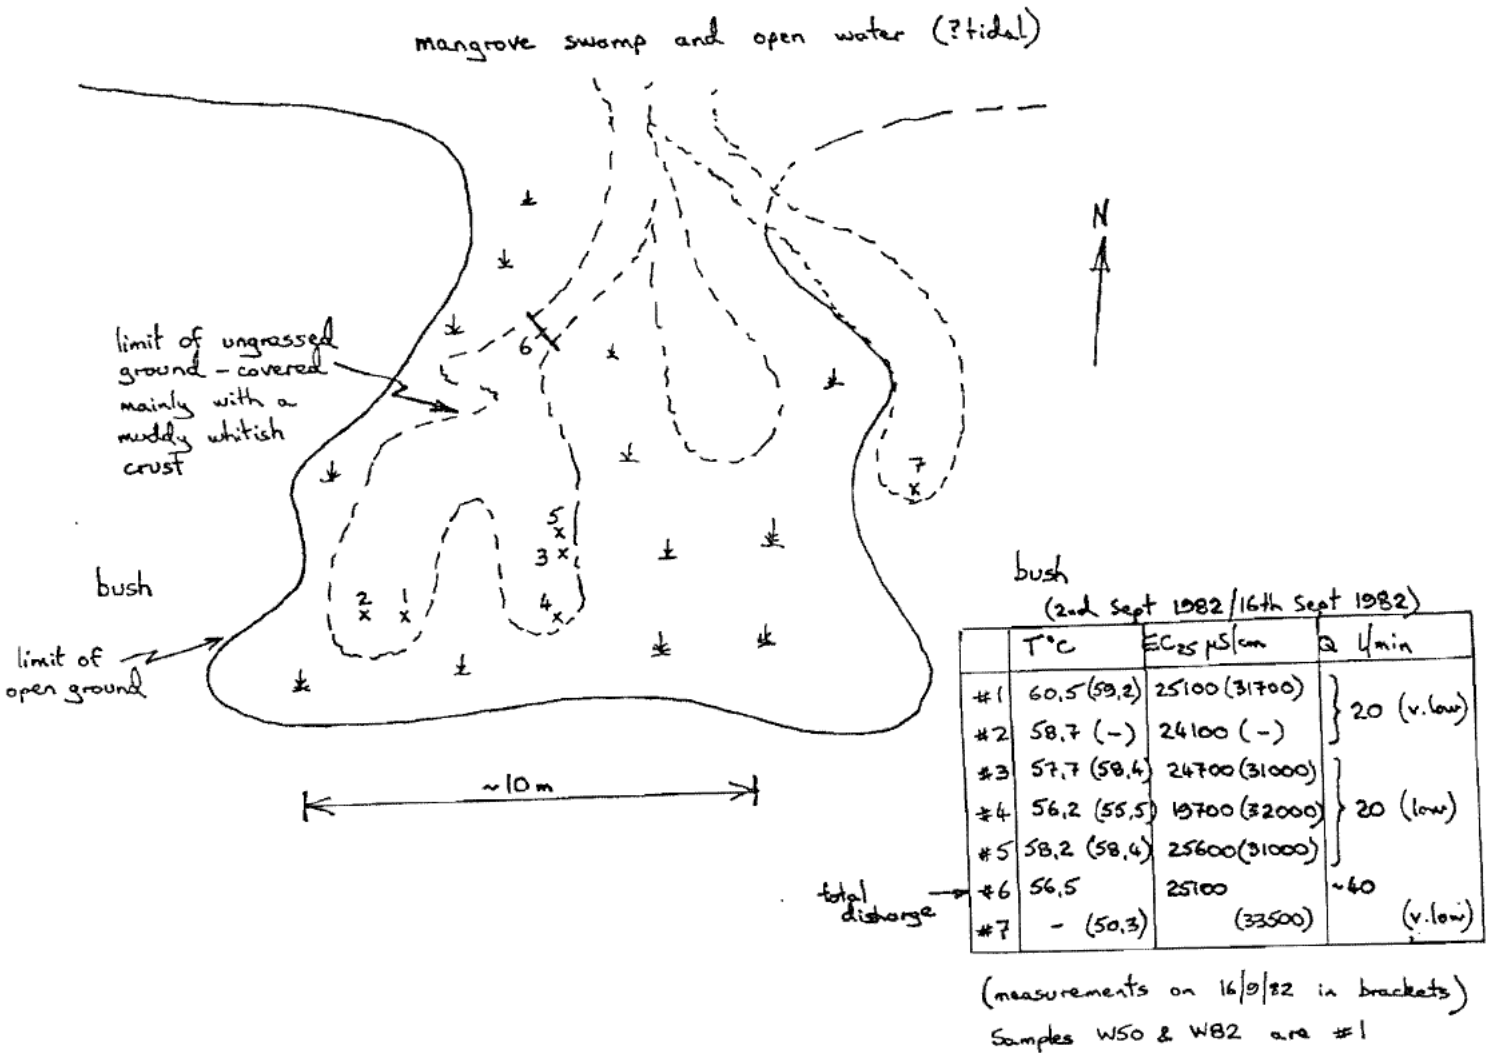 mangrove swamp and open water (?tidal)
N
limit of ungrassed
ground - covered
mainly with a
muddy whitish
crust
6
7
x
5
x
3 x
4 x
2
x
1
x
bush
limit of
open ground
~10 m
bush
(2nd Sept 1982/16th Sept 1982)
T°C EC25 µS/cm Q l/min
#1 60,5 (59,2) 25100 (31700)
#2 58,7 (-) 24100 (-)
} 20 (v.low)
#3 57,7 (58,4) 24700 (31000)
#4 56,2 (55,5) 19700 (32000)
#5 58,2 (58,4) 25600 (31000)
} 20 (low)
total
disharge
#6 56,5 25100 ~40
#7 - (50,3) (33500) (v.low)
(measurements on 16/9/82 in brackets)
Samples W50 & W82 are #1